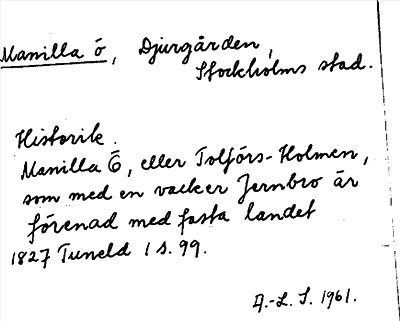 Manilla ö, Djurgården,
Stockholms stad.
Historik.
Manilla Ö, eller Tolförs-Holmen,
som med en vacker Jernbro är
förenad med fasta landet
1827 Tuneld 1 s. 99.
A.-L. S. 1961.